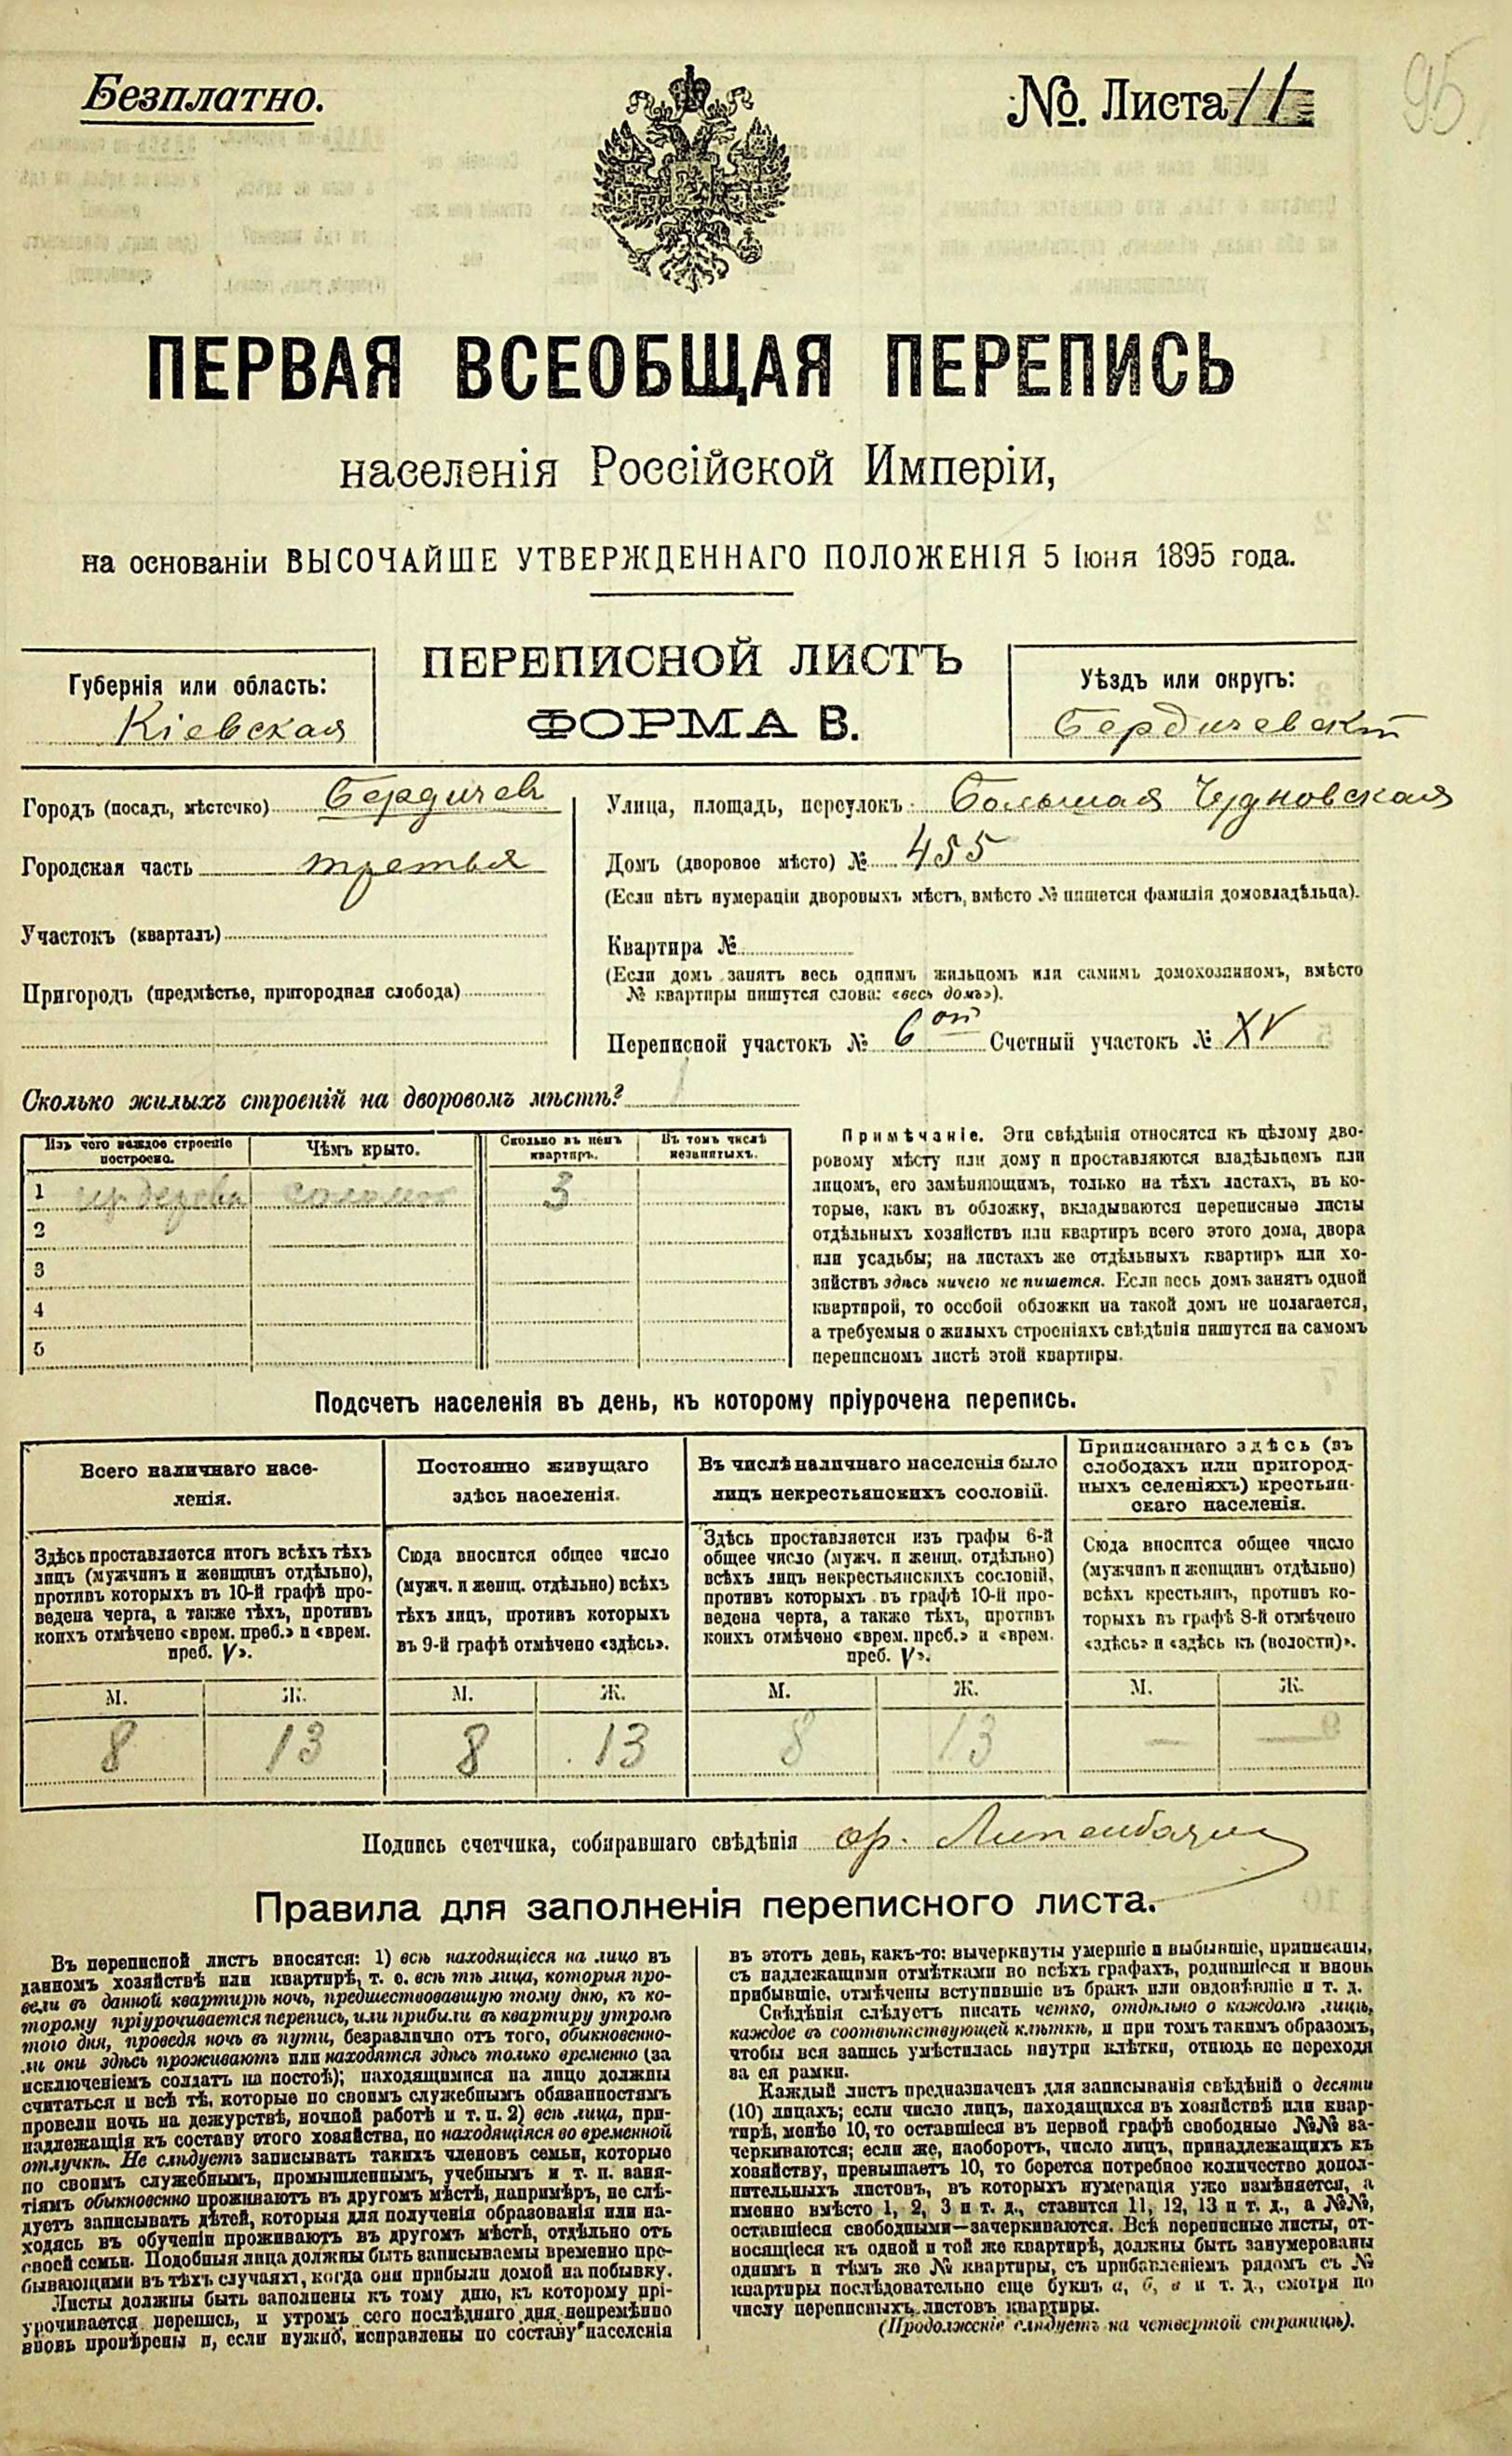 Безплатно.
№. Листа 11
95
ПЕРВАЯ ВСЕОБЩАЯ ПЕРЕПИСЬ
населенія Россійской Имперіи,
на основаніи ВЫСОЧАЙШЕ УТВЕРЖДЕННАГО ПОЛОЖЕНІЯ 5 Іюня 1895 года.
ПЕРЕПИСНОЙ ЛИСТЪ
ФОРМА В.
Губернія или область:
Кіевская
Уѣздъ или округъ:
Бердичевскій
Городъ (посадъ, мѣстечко) Бердичев
Городская часть третья
Участокъ (кварталъ)
Пригородъ (предмѣстье, пригородная слобода)
Улица, площадь, переулокъ Большая Чудновская
Домъ (дворовое мѣсто) № 455
(Если нѣтъ нумераціи дворовыхъ мѣстъ, вмѣсто № пишется фамилія домовладѣльца).
Квартира №
(Если домъ занятъ весь однимъ жильцомъ или самимъ домохозяиномъ, вмѣсто
№ квартиры пишутся слова: «весь домъ»).
Переписной участокъ № 6ой Счетный участокъ № XV
Сколько жилыхъ строеній на дворовомъ мѣстѣ? 1
Изъ чего каждое строеніе построено.
Чѣмъ крыто.
Сколько въ немъ квартиръ.
Въ томъ числѣ незанятыхъ.
1 из дерева 3
2
3
4
5
Примѣчаніе. Эти свѣдѣнія относятся къ цѣлому дво-
ровому мѣсту или дому и проставляются владѣльцемъ или
лицомъ, его замѣняющимъ, только на тѣхъ листахъ, въ ко-
торые, какъ въ обложку, вкладываются переписные листы
отдѣльныхъ хозяйствъ или квартиръ всего этого дома, двора
или усадьбы; на листахъ же отдѣльныхъ квартиръ или хо-
зяйствъ здѣсь ничего не пишется. Если весь домъ занятъ одной
квартирой, то особой обложки на такой домъ не полагается,
а требуемыя о жилыхъ строеніяхъ свѣдѣнія пишутся на самомъ
переписномъ листѣ этой квартиры.
Подсчетъ населенія въ день, къ которому пріурочена перепись.
Всего наличнаго насе-
ленія.
Здѣсь проставляется итогъ всѣхъ тѣхъ
лицъ (мужчинъ и женщинъ отдѣльно),
противъ которыхъ въ 10-й графѣ про-
ведена черта, а также тѣхъ, противъ
коихъ отмѣчено «врем. преб.» и «врем.
преб. V».
М. Ж.
8 13
Постоянно живущаго
здѣсь населенія.
Сюда вносится общее число
(мужч. и женщ. отдѣльно) всѣхъ
тѣхъ лицъ, противъ которыхъ
въ 9-й графѣ отмѣчено «здѣсь».
М. Ж.
8 13
Въ числѣ наличнаго населенія было
лицъ некрестьянскихъ сословій.
Здѣсь проставляется изъ графы 6-й
общее число (мужч. и женщ. отдѣльно)
всѣхъ лицъ некрестьянскихъ сословій,
противъ которыхъ въ графѣ 10-й про-
ведена черта, а также тѣхъ, противъ
коихъ отмѣчено «врем. преб.» и «врем.
преб. V».
М. Ж.
8 13
Приписаннаго здѣсь (въ
слободахъ или пригород-
ныхъ селеніяхъ) крестьян-
скаго населенія.
Сюда вносится общее число
(мужчинъ и женщинъ отдѣльно)
всѣхъ крестьянъ, противъ ко-
торыхъ въ графѣ 8-й отмѣчено
«здѣсь» и «здѣсь къ (волости)».
М. Ж.
— —
Подпись счетчика, собиравшаго свѣдѣнія
Правила для заполненія переписного листа.
Въ переписной листъ вносятся: 1) всѣ находящіеся на лицо въ
данномъ хозяйствѣ или квартирѣ, т. е. всѣ тѣ лица, которыя про-
вели въ данной квартирѣ ночь, предшествовавшую тому дню, къ ко-
торому пріурочивается перепись, или прибыли въ квартиру утромъ
того дня, проведя ночь въ пути, безразлично отъ того, обыкновенно-
ли они здѣсь проживаютъ или находятся здѣсь только временно (за
исключеніемъ солдатъ на постоѣ); находящимися на лицо должны
считаться и всѣ тѣ, которые по своимъ служебнымъ обязанностямъ
провели ночь на дежурствѣ, ночной работѣ и т. п. 2) всѣ лица, при-
надлежащія къ составу этого хозяйства, но находящіяся во временной
отлучкѣ. Не слѣдуетъ записывать такихъ членовъ семьи, которые
по своимъ служебнымъ, промышленнымъ, учебнымъ и т. п. заня-
тіямъ обыкновенно проживаютъ въ другомъ мѣстѣ, напримѣръ, не слѣ-
дуетъ записывать дѣтей, которыя для полученія образованія или на-
ходясь въ обученіи проживаютъ въ другомъ мѣстѣ, отдѣльно отъ
своей семьи. Подобныя лица должны быть записываемы временно пре-
бывающими въ тѣхъ случаяхъ, когда они прибыли домой на побывку.
Листы должны быть заполнены къ тому дню, къ которому прі-
урочивается перепись, и утромъ сего послѣдняго дня непремѣнно
вновь провѣрены и, если нужно, исправлены по составу населенія
въ этотъ день, какъ-то: вычеркнуты умершіе и выбывшіе, приписаны,
съ надлежащими отмѣтками во всѣхъ графахъ, родившіеся и вновь
прибывшіе, отмѣчены вступившіе въ бракъ или овдовѣвшіе и т. д.
Свѣдѣнія слѣдуетъ писать четко, отдѣльно о каждомъ лицѣ,
каждое въ соотвѣтствующей клѣткѣ, и при томъ такимъ образомъ,
чтобы вся запись умѣстилась внутри клѣтки, отнюдь не переходя
за ея рамки.
Каждый листъ предназначенъ для записыванія свѣдѣній о десяти
(10) лицахъ; если число лицъ, находящихся въ хозяйствѣ или квар-
тирѣ, менѣе 10, то оставшіеся въ первой графѣ свободные №№ за-
черкиваются; если же, наоборотъ, число лицъ, принадлежащихъ къ
хозяйству, превышаетъ 10, то берется потребное количество допол-
нительныхъ листовъ, въ которыхъ нумерація уже измѣняется, а
именно вмѣсто 1, 2, 3 и т. д., ставится 11, 12, 13 и т. д., а №№,
оставшіеся свободными—зачеркиваются. Всѣ переписные листы, от-
носящіеся къ одной и той же квартирѣ, должны быть занумерованы
однимъ и тѣмъ же № квартиры, съ прибавленіемъ рядомъ съ №
квартиры послѣдовательно еще буквъ а, б, в и т. д., смотря по
числу переписныхъ листовъ квартиры.
(Продолженіе слѣдуетъ на четвертой страницѣ).